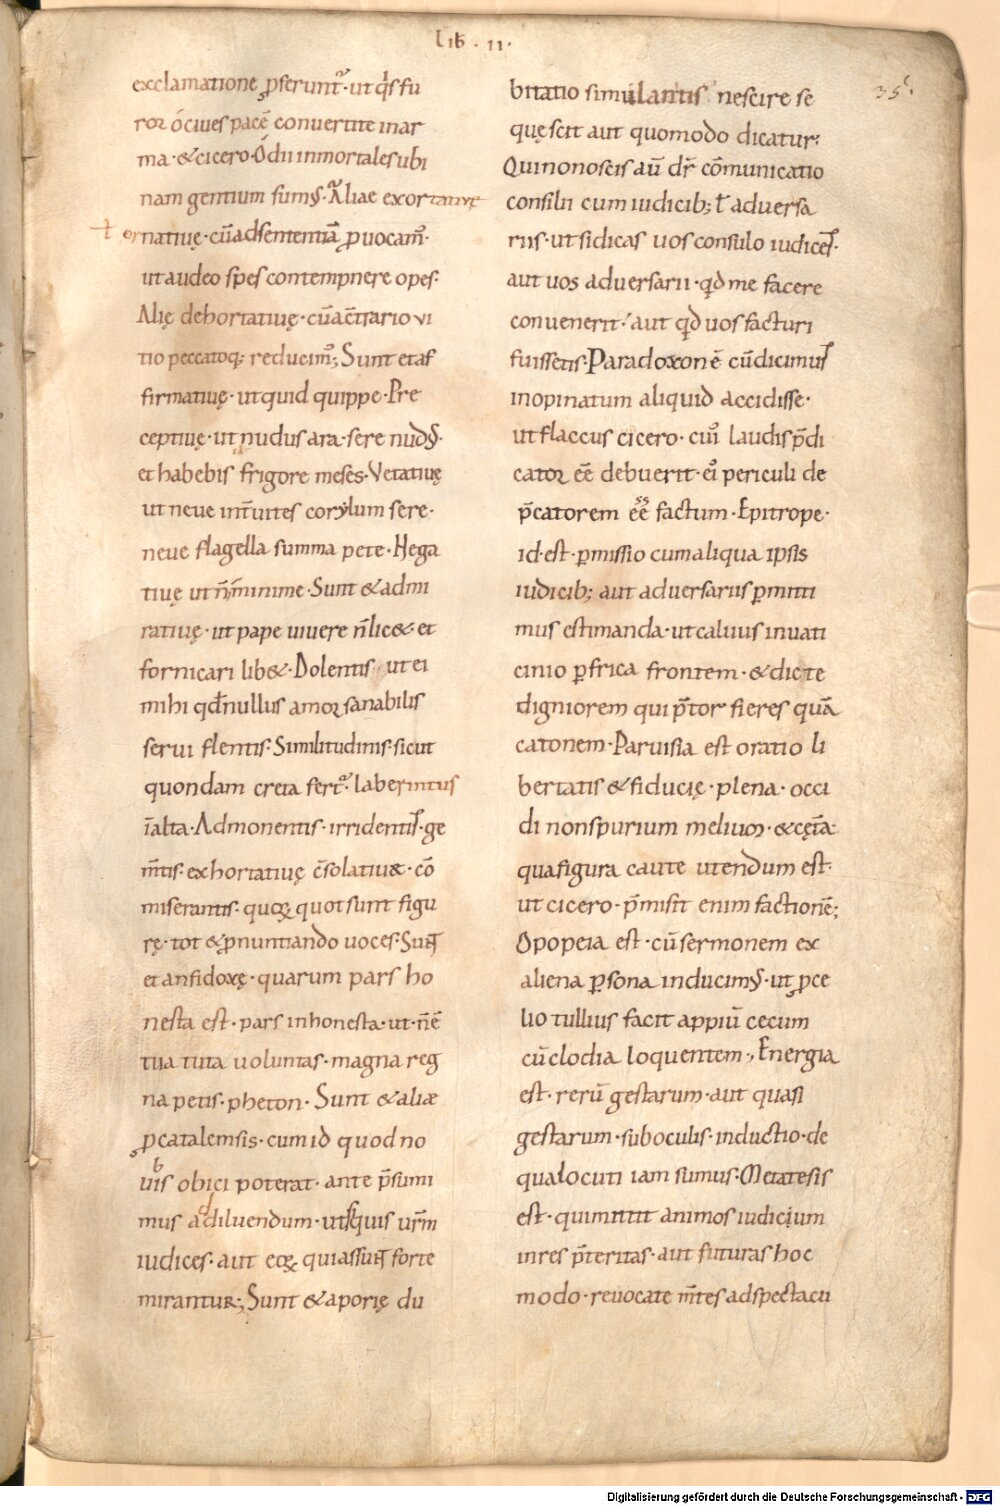 Lib . II.
35.
exclamatione ꝓferunt᷒·ut qͥs fu
ror ó ciues pacē conuertite in ar
ma·&cicero·Ó dii inmortales ubi
nam gentium sumꝰ·Aliae exortatiuę
ł ornatiuę·cū adsententiā ꝓuocam᷒·
ut audeo spes contempnere opes·
Alię dehortatiuę·cū a c̄trario vi
tio peccatoq; reducim᷒; Sunt et af
firmatiuę·ut quid quippe·Pre
ceptiuę·ut nudus ara·sere nudꝰ·
et habebis frigore meses·Vetatiuę
ut neue int̄ uites corylum sere·
neue flagella summa pete·Nega
tiuę ut n̄ minime·Sunt &admi
ratiuę·ut pape uiuere n̄ lic&·et
fornicari lib&·Dolentis ut ei
mihi qđ nullus amor sanabilis
servi flentis·Similitudinis·sicut
quondam creta fert᷒·laberintus
ī alta·Admonentis·irridentis·ge
m̄tis·exhortatiuę c̄solatiuæ·cō
miserantis·quoꝝ quot sunt figu
rę·tot &ꝓnuntiando uoces·Suꝴ
et anfidoxę·quarum pars ho
nesta est·pars inhonesta·ut·n̄ ē
tua tuta uoluntas·magna reg
na petis·pheton·Sunt &aliæ
ꝓcatalemsis·cum id quod no
bis obici poterat·ante p̄sumi
mus ad diluendum·ut sí quis ur̄m
iudices·aut eoꝝ qui assuꝴ forte
mirantur; Sunt &aporię du
bitatio simulantis nescire se
quę scit aut quomodo dicatur:
Qui nonoscis aū dr̄ cōmunicatio
consilii cum iudicib; ł aduersa
riis·ut si dicas uos consulo iudices·
aut uos aduersarii·qđ me facere
conuenerit·aut qđ uos facturi
fuissetis·Paradoxon ē cū dicimus
inopinatum aliquid accidisse·
ut flaccus cicero·cui᷒ laudis p̄di
cator eē debuerit·ei᷒ periculi de
p̄catorem eē factum·Epitrope·
id·est·ꝑmissio cum aliqua ipsis
iudicib; aut aduersariis ꝑmitti
mus estimanda·ut caluus in uati
cinio ꝑfrica frontem·&dic te
digniorem qui p̄tor fieres quā
catonem·Parvisia est oratio li
bertatis &fiducię·plena·occi
di non spurium melium·&cęt̄a·
qua figura caute utendum est·
ut cicero·p̄misit enim factionē;
Opopeia est·cū sermonem ex
aliena ꝑsona inducimꝰ·ut ꝓce
lio tullius facit appiū cecum
cū clodia loquentem·, Energia
est·rerū gestarum·aut quasi
gestarum·sub oculis·inductio·de
qua locuti iam sumus·Metatesis
est·qui mittit animos iudicium
in res p̄teritas·aut futuras hoc
modo·reuocate m̄tes ad spectacu
Digitalisierung gefördert durch die Deutsche Forschungsgemeinschaft - DFG